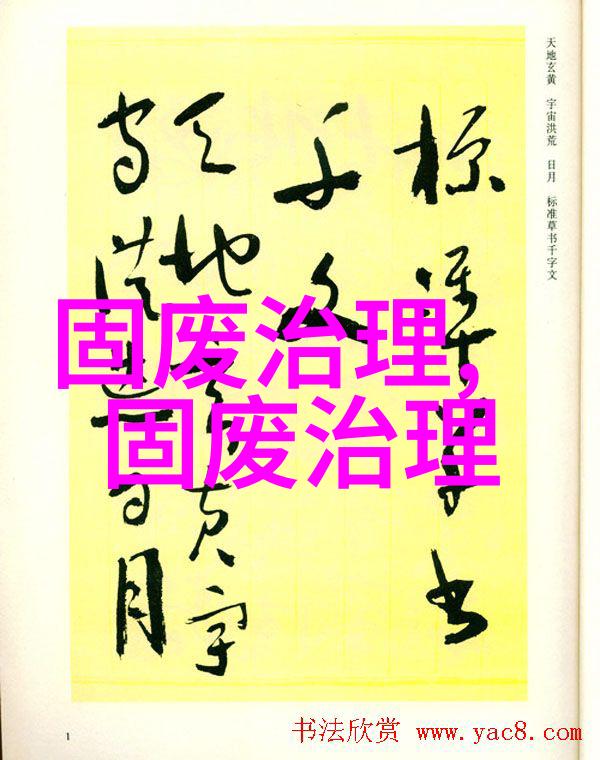 天地玄黄 宇宙洪荒 日月 标准草书千字文
标准草书
千文
天地玄黄宇
宙洪荒日月
固废治理,
固废治理
1
书法欣赏 www.yac8.com